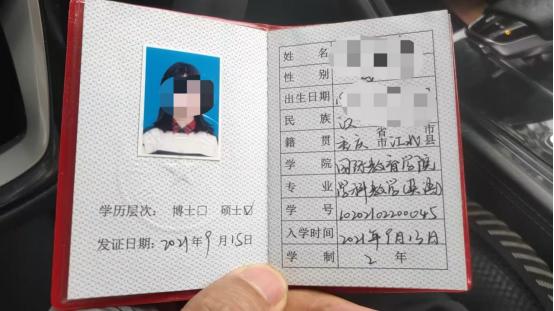 学历层次: 博士☐ 硕士☑
发证日期: 2021年9月15日
姓名
性别
出生日期
民族 汉
籍贯 重庆 省市 江北 市县
学院 国际教育学院
专业 学科教学(英语)
学号 10202102200045
入学时间 2021年9月13日
学制 2年